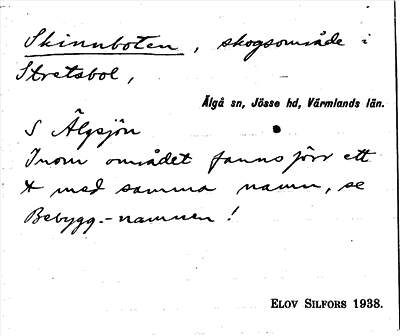 Skinnboten, skogsområde i
Stretsbol,
Älgå sn, Jösse hd, Värmlands län.
S Älgsjön
Inom området fanns förr ett
med samma namn, se
Bebygg.-namnen!
ELOV SILFORS 1938.